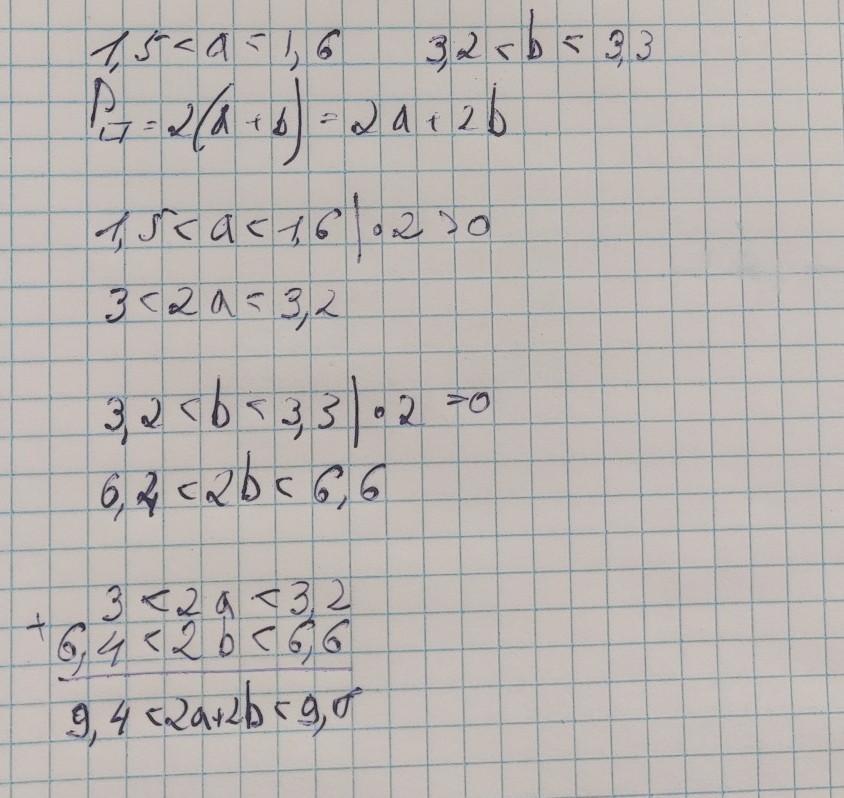 1,5 < a < 1,6 3,2 < b < 3,3
P▭ = 2(a + b) = 2a + 2b
1,5 < a < 1,6 | • 2 > 0
3 < 2a < 3,2
3,2 < b < 3,3 | • 2 > 0
6,4 < 2b < 6,6
3 < 2a < 3,2
+
6,4 < 2b < 6,6
9,4 < 2a+2b < 9,8